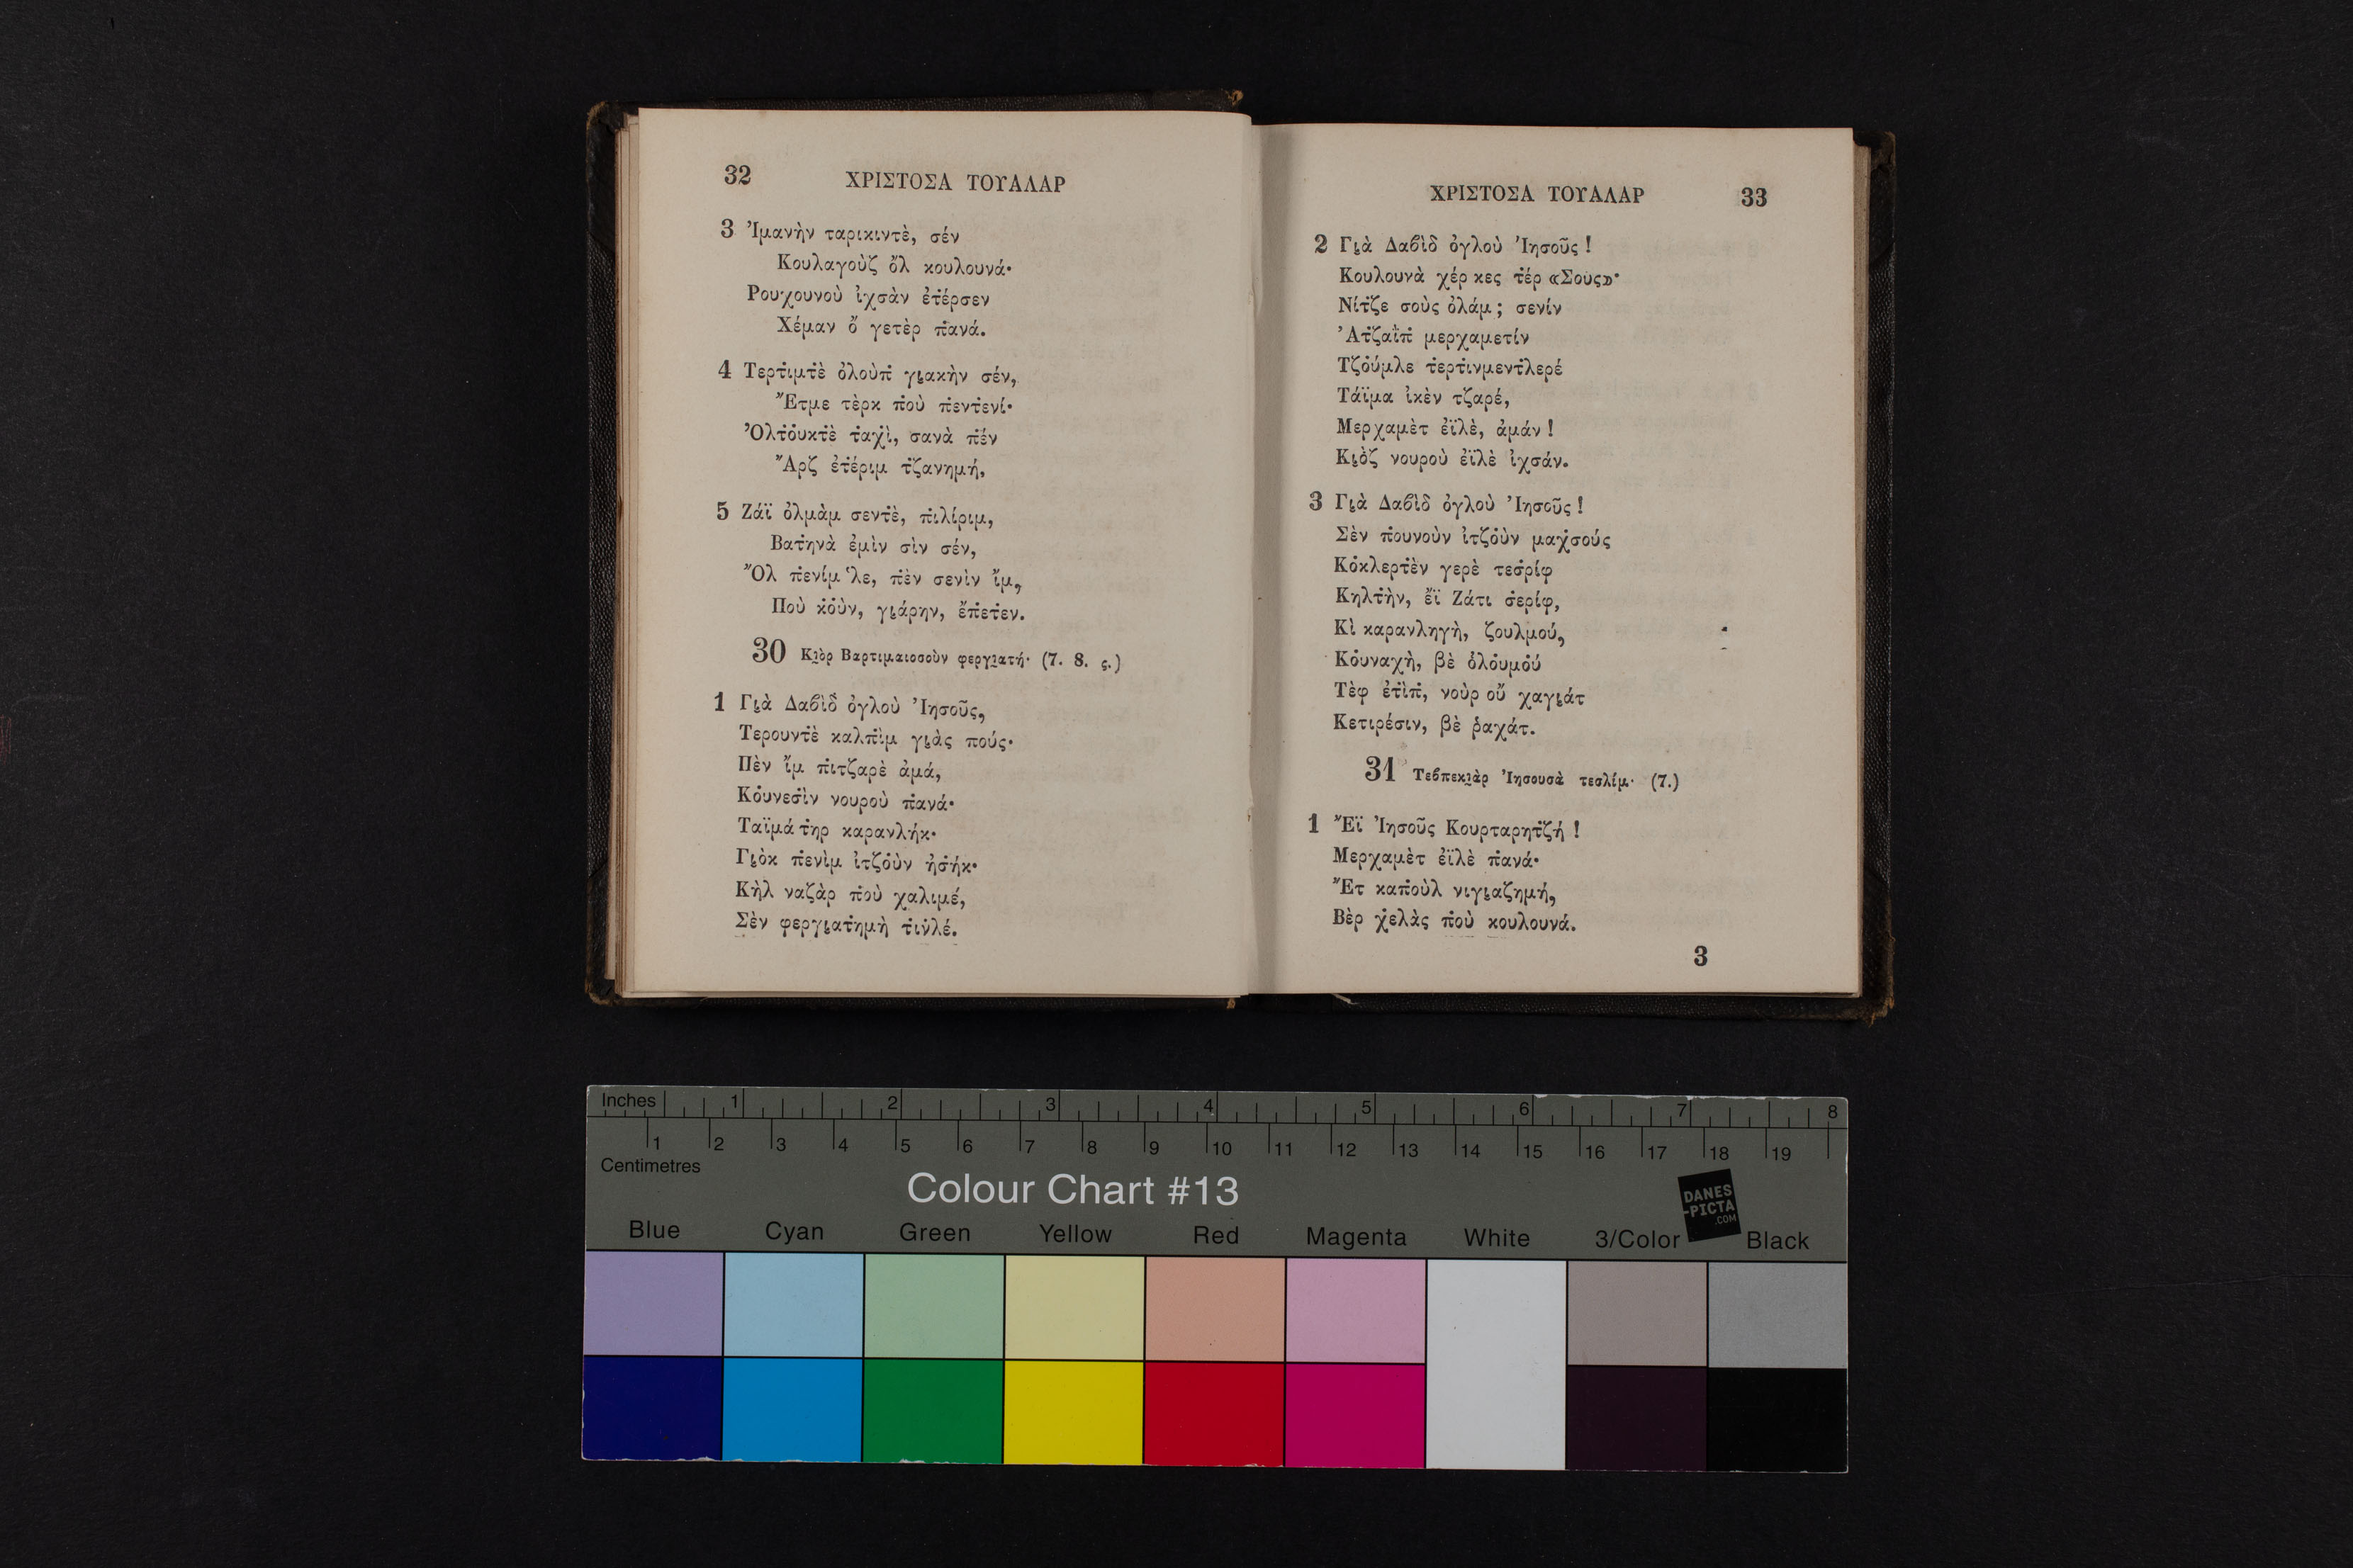 32 ΧΡΙΣΤΟΣΑ ΤΟΥΑΛΑΡ
3 Ἰμανὴν ταρικιντὲ, σέν
Κουλαγοὺζ ὂλ κουλουνά·
Ρουχουνοὺ ἰχσὰν ἐτέρσεν
Χέμαν ὂ γετὲρ π̇ανά.
4 Τερτ̇ιμτ̇ὲ ὀλοὺπ̇ γι̮ακὴν σέν,
Ἔτμε τὲρκ π̇οὺ π̇εντ̇ενί·
Ὀλτ̇ο̇υκτ̇ὲ τ̇αχὶ, σανὰ π̇έν
Ἄρζ ἐτ̇έριμ τ̇ζανημή,
5 Ζάϊ ὀλμὰμ σεντ̇ὲ, π̇ιλίριμ,
Βατ̇ηνὰ ἐμὶν σὶν σέν,
Ὂλ π̇ενίμ ʽλε, π̇ὲν σενὶν ἴμ,
Ποὺ κο̇ὺν, γι̮άρην, ἔπ̇ετ̇εν.
30 Κι̮ὸρ Βαρτιμαιοσοὺν φεργι̮ατή· (7. 8. ς.)
1 Γι̮ὰ Δαβὶδ ὀγλοὺ Ἰησοῦς,
Τερουντ̇ὲ καλπ̇ὶμ γι̮ὰς πούς·
Πὲν ἴμ π̇ιτζαρὲ ἀμά,
Κο̇υνεσ̇ὶν νουροὺ π̇ανά·
Ταϊμά τ̇ηρ καρανλήκ·
Γι̮ὸκ π̇ενὶμ ἰτζο̇ὺν ἠσ̇ήκ·
Κὴλ ναζὰρ π̇οὺ χαλιμέ,
Σὲν φεργι̮ατ̇ημὴ τ̇ιν̇λέ.
ΧΡΙΣΤΟΣΑ ΤΟΥΑΛΑΡ 33
2 Γι̮ὰ Δαβὶδ ὀγλοὺ Ἰησοῦς!
Κουλουνὰ χέρ κες τ̇έρ «Σούς»·
Νίτ̇ζε σοὺς ὀλάμ; σενίν
Ἀτ̇ζαΐπ̇ μερχαμετίν
Τζο̇ύμλε τ̇ερτ̇ινμεντ̇λερέ
Τάϊμα ἰκὲν τζαρέ,
Μερχαμὲτ ἐϊλὲ, ἀμάν!
Κι̮ὸζ νουροὺ ἐϊλὲ ἰχσάν.
3 Γι̮ὰ Δαβὶδ ὀγλοὺ Ἰησοῦς!
Σὲν π̇ουνοὺν ἰτζο̇ὺν μαχ̇σούς
Κο̇κλερτ̇ὲν γερὲ τεσ̇ρίφ
Κηλτ̇ὴν, ἔϊ Ζάτι σ̇ερίφ,
Κὶ καρανληγὴ, ζουλμού,
Κο̇υναχὴ, βὲ ὀ̇λο̇υμο̇ύ
Τὲφ ἐτ̇ὶπ̇, νοὺρ οὔ χαγι̮άτ
Κετιρέσιν, βὲ ῥαχάτ.
31 Τεβπεκι̮ὰρ Ἰησουσὰ τεσλίμ· (7.)
1 Ἔϊ Ἰησοῦς Κουρταρητ̇ζή!
Μερχαμὲτ ἐϊλὲ π̇ανά·
Ἔτ καπ̇οὺλ νιγι̮αζημή,
Βὲρ χ̇ελὰς π̇οὺ κουλουνά.
3
Inches 1 2 3 4 5 6 7 8
1 2 3 4 5 6 7 8 9 10 11 12 13 14 15 16 17 18 19
Centimetres
Colour Chart #13
DANES
-PICTA
.COM
Blue Cyan Green Yellow Red Magenta White 3/Color Black